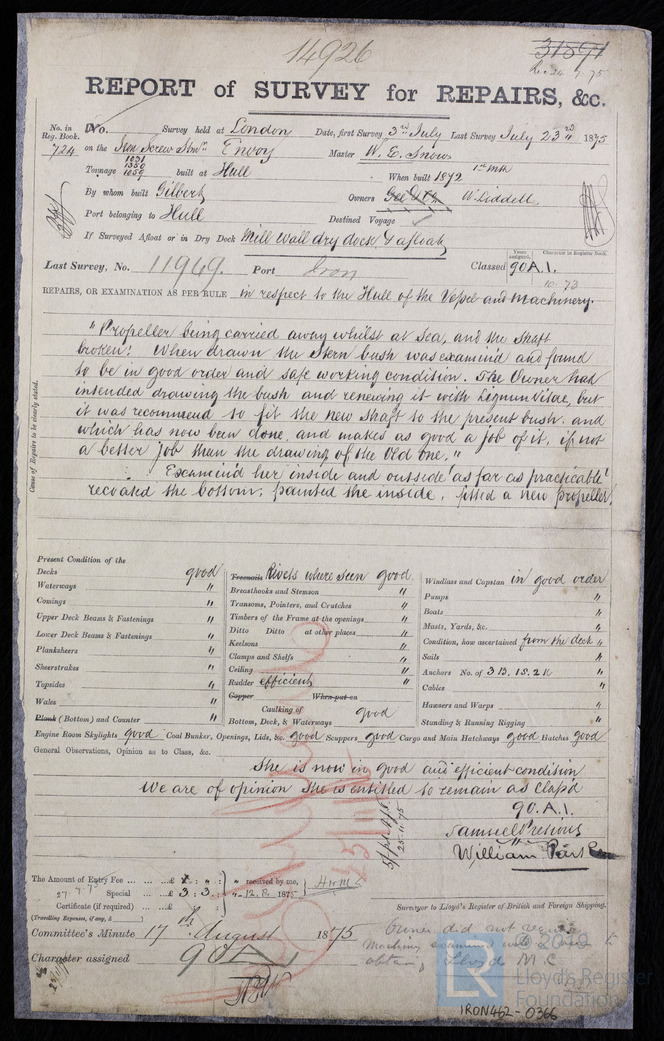 14926
31891
REPORT of SURVEY for REPAIRS, &c.
No. in Reg. Book. 724
No. Survey held at London Date, first Survey 3rd July Last Survey July 23rd 1875
on the Iron Screw Stmr Envoy Master W. E. Snow
Tonnage 1031 1350 1059 built at Hull When built 1872 1st Mth
By whom built Gilbert Owners W Liddell
Port belonging to Hull Destined Voyage
If Surveyed Afloat or in Dry Dock Mill Wall dry dock & afloat
Last Survey, No. 11949. Port Iron Classed 90 A.1.
Years assigned. Character in Register Book.
10.73
REPAIRS, OR EXAMINATION AS PER RULE in respect to the Hull of the Vessel and Machinery.
Cause of Repairs to be clearly stated.
"Propeller being carried away whilst at Sea, and the shaft
broken: When drawn the Stern bush was examined and found
to be in good order and safe working condition. The Owner had
intended drawing the bush and renewing it with Lignum Vitae, but
it was recommend to fit the new shaft to the present bush, and
which has now been done, and makes as good a job of it, if not
a better job than the drawing of the old one."
Examin'd her inside and outside 'as far as practicable'
recoated the bottom; painted the inside, fitted a new propeller.
Present Condition of the
Decks good
Waterways "
Comings "
Upper Deck Beams & Fastenings "
Lower Deck Beams & Fastenings "
Planksheers "
Sheerstrakes "
Topsides "
Wales "
Plank (Bottom) and Counter "
Treenails Rivets where seen good.
Breasthooks and Stemson "
Transoms, Pointers, and Crutches "
Timbers of the Frame at the openings "
Ditto Ditto at other places "
Keelsons "
Clamps and Shelfs "
Ceiling "
Rudder efficient "
Copper When put on
Caulking of
Bottom, Deck, & Waterways good
Windlass and Capstan in good order
Pumps "
Boats "
Masts, Yards, &c. "
Condition, how ascertained from the deck "
Sails "
Anchors No. of 3 B. 1 S. 2 K
Cables "
Hawsers and Warps "
Standing & Running Rigging "
Engine Room Skylights good Coal Bunker, Openings, Lids, &c. good Scuppers good Cargo and Main Hatchways good Hatches good
General Observations, Opinion as to Class, &c.
She is now in good and efficient condition
We are of opinion she is entitled to remain as Class'd
90. A.1.
25.11.75
William Park
The Amount of Entry Fee £ : :
Special £ 3 : 3 : received by me, 12.8.1875
Certificate (if required) £ : :
(Travelling Expenses, if any, £ )
Surveyor to Lloyd's Register of British and Foreign Shipping.
Committee's Minute 17th August 1875
Character assigned 90 A 1
Owner did not require
obtaining Lloyd M C
LR
Lloyd's Register
Foundation
IRON462-0366